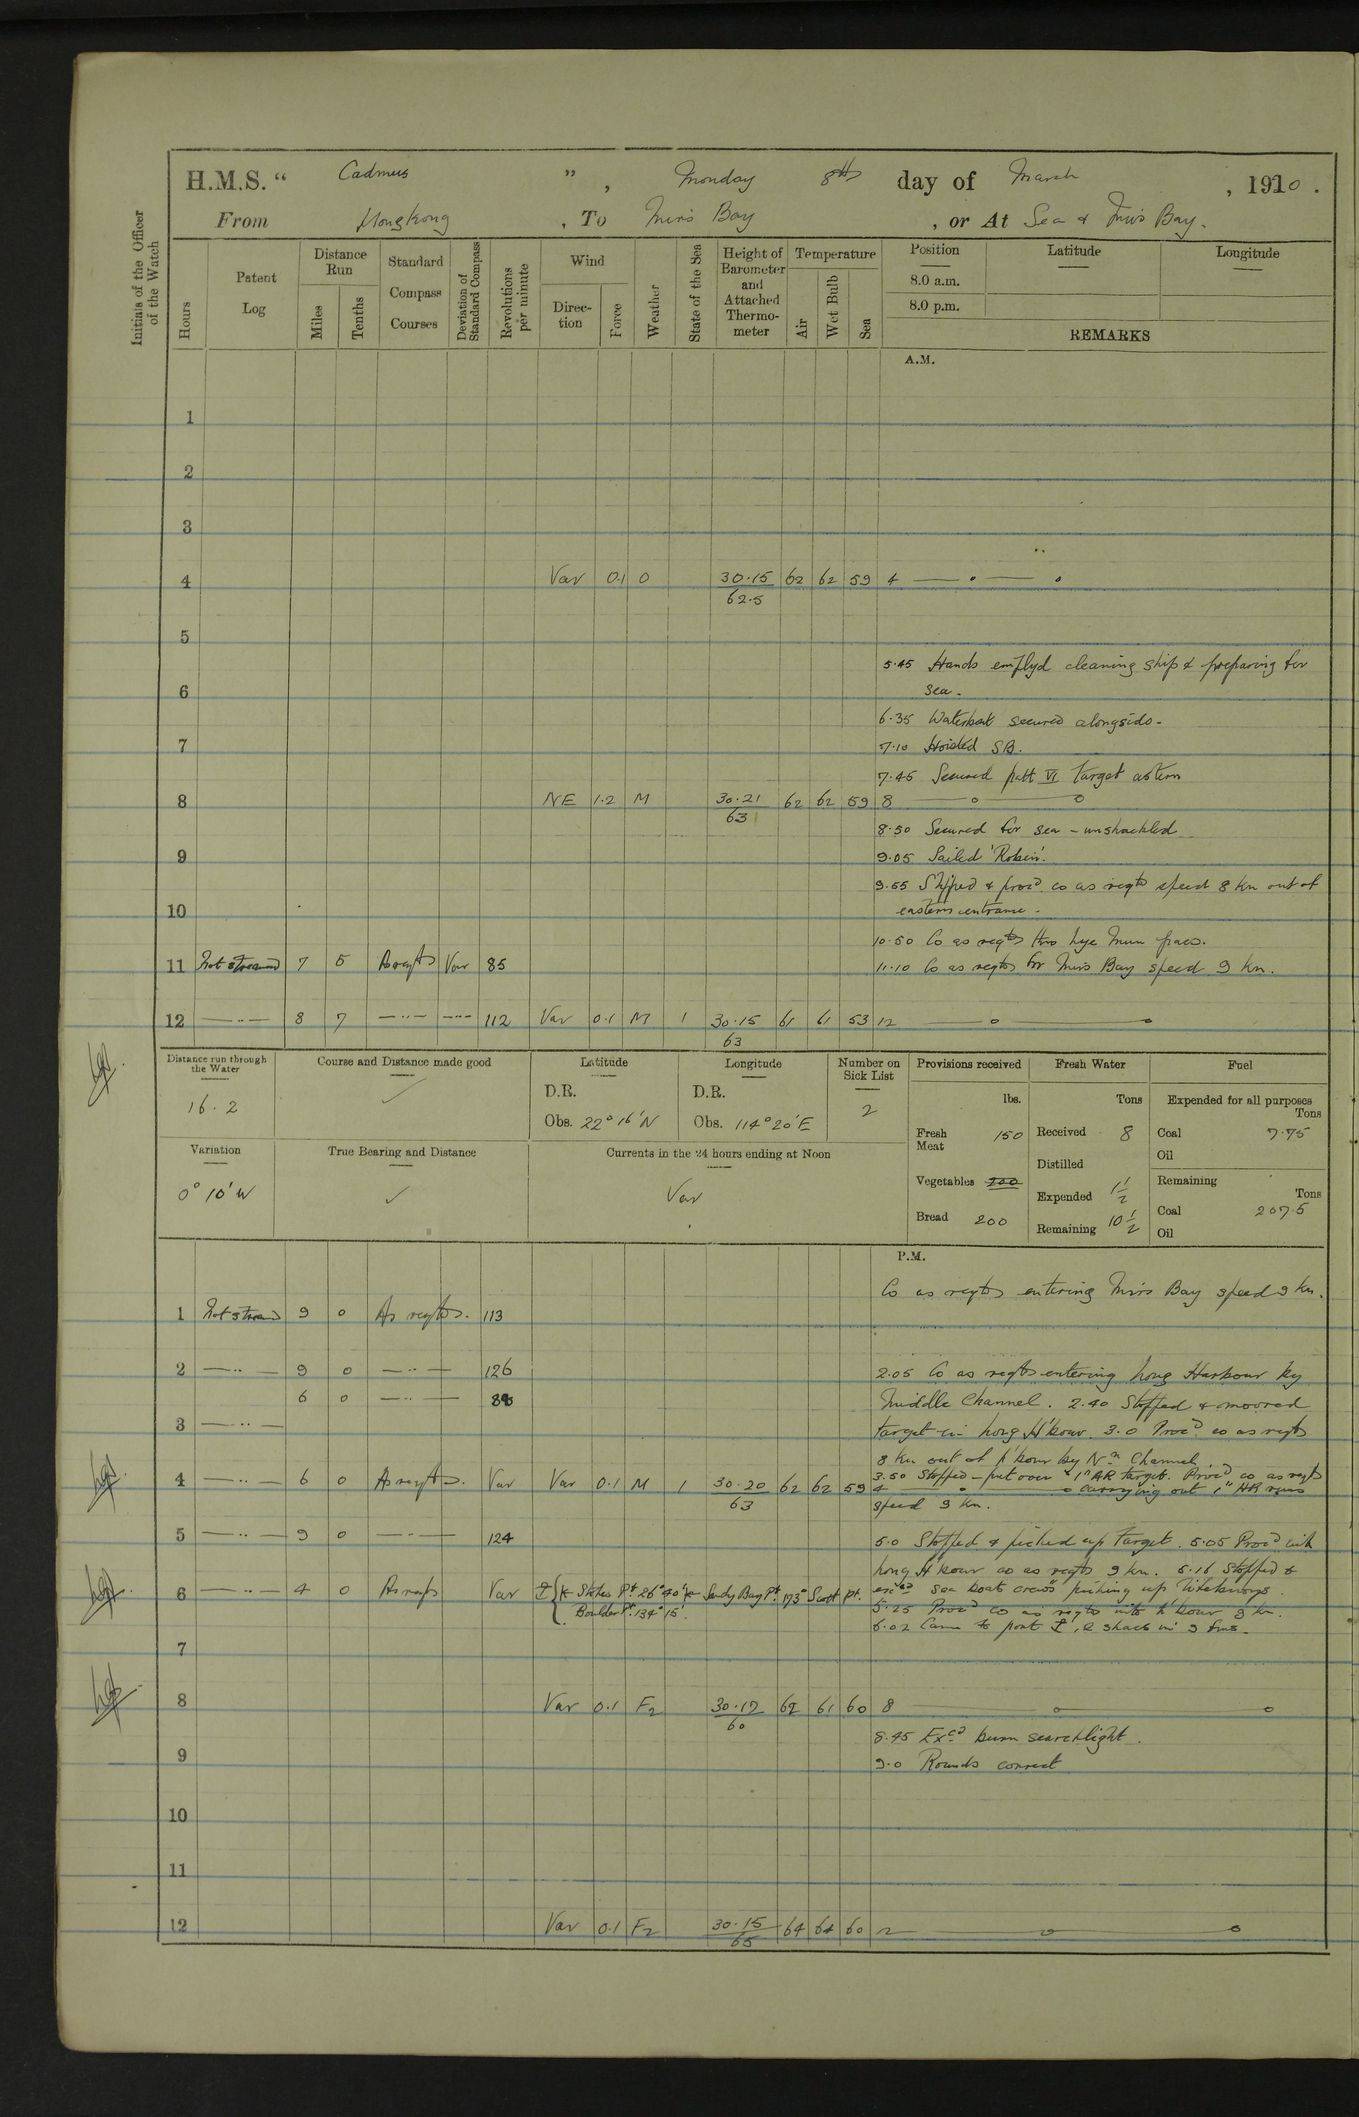 H.M.S. "Cadmus", Monday 8th day of March, 1920.
From Hong Kong, To Mirs Bay, or At Sea & Mirs Bay.
Initials of the Officer of the Watch
Hours
Patent Log
Distance Run
Miles
Tenths
Standard Compass Courses
Deviation of Standard Compass
Revolutions per minute
Wind
Direction
Force
Weather
State of the Sea
Height of Barometer and Attached Thermometer
Temperature
Air
Wet Bulb
Sea
Position
8.0 a.m.
8.0 p.m.
Latitude
Longitude
REMARKS
A.M.
1
2
3
4 Var 0.1 O 30.15 62.5 62 62 59 4
5
5.45 Hands employd cleaning ship & preparing for
sea.
6
6.35 Waterboat secured alongside.
7
7.10 Hoisted SB.
7.45 Secured patt VI target astern
8 NE 1.2 M 30.21 63 62 62 59 8
8.50 Secured for sea - unshackled
9
9.05 Sailed 'Robin'.
9.55 Slipped & proc'd co as reqts speed 8 kn out of
10
eastern entrance.
10.50 Co as reqts thro Lye Mun pass.
11 Not streamed 7 5 As reqts Var 85
11.10 Co as reqts for Mirs Bay speed 9 kn.
12 8 7 112 Var 0.1 M 1 30.15 63 61 61 53 12
Distance run through the Water
16.2
Course and Distance made good
Latitude
D.R.
Obs. 22° 16' N
Longitude
D.R.
Obs. 114° 20' E
Number on Sick List
2
Provisions received
lbs.
Fresh Meat 150
Vegetables 200
Bread 200
Fresh Water
Tons
Received 8
Distilled
Expended 1½
Remaining 10½
Fuel
Expended for all purposes
Tons
Coal 7.75
Oil
Remaining
Tons
Coal 207.5
Oil
Variation
0° 10' W
True Bearing and Distance
Currents in the 24 hours ending at Noon
Var
P.M.
Co as reqts entering Mirs Bay speed 9 kn.
1 Not streamed 9 0 As reqts. 113
2 9 0 126
2.05 Co as reqts entering Long Harbour by
6 0
Middle Channel. 2.40 Stopped & moored
3
target in Long H'bour. 3.0 Proc'd co as reqts
8 kn out of h'bour by Nn Channel.
3.50 Stopped - put over 1" AR target. Proc'd co as reqts
4 6 0 As reqts. Var Var 0.1 M 1 30.20 63 62 62 59 4 carrying out 1" AR runs
speed 9 kn.
5 9 0 124
5.0 Stopped & picked up target. 5.05 Proc'd into
Long H'bour co as reqts 9 kn. 5.16 Stopped &
6 4 0 As reqts Var Stokes Pt 26° 40' Sandy Bay Pt. 173° Scott Pt.
Boulder Pt. 134° 15'.
exc'd sea boats crews picking up lifebuoys.
5.25 Proc'd co as reqts into h'bour 9 kn.
6.02 Came to port, 2 shack in 9 fms.
7
8 Var 0.1 F2 30.17 60 62 61 60 8
8.45 Exc'd burn searchlight.
9
9.0 Rounds correct
10
11
12 Var 0.1 F2 30.15 65 64 64 60 12